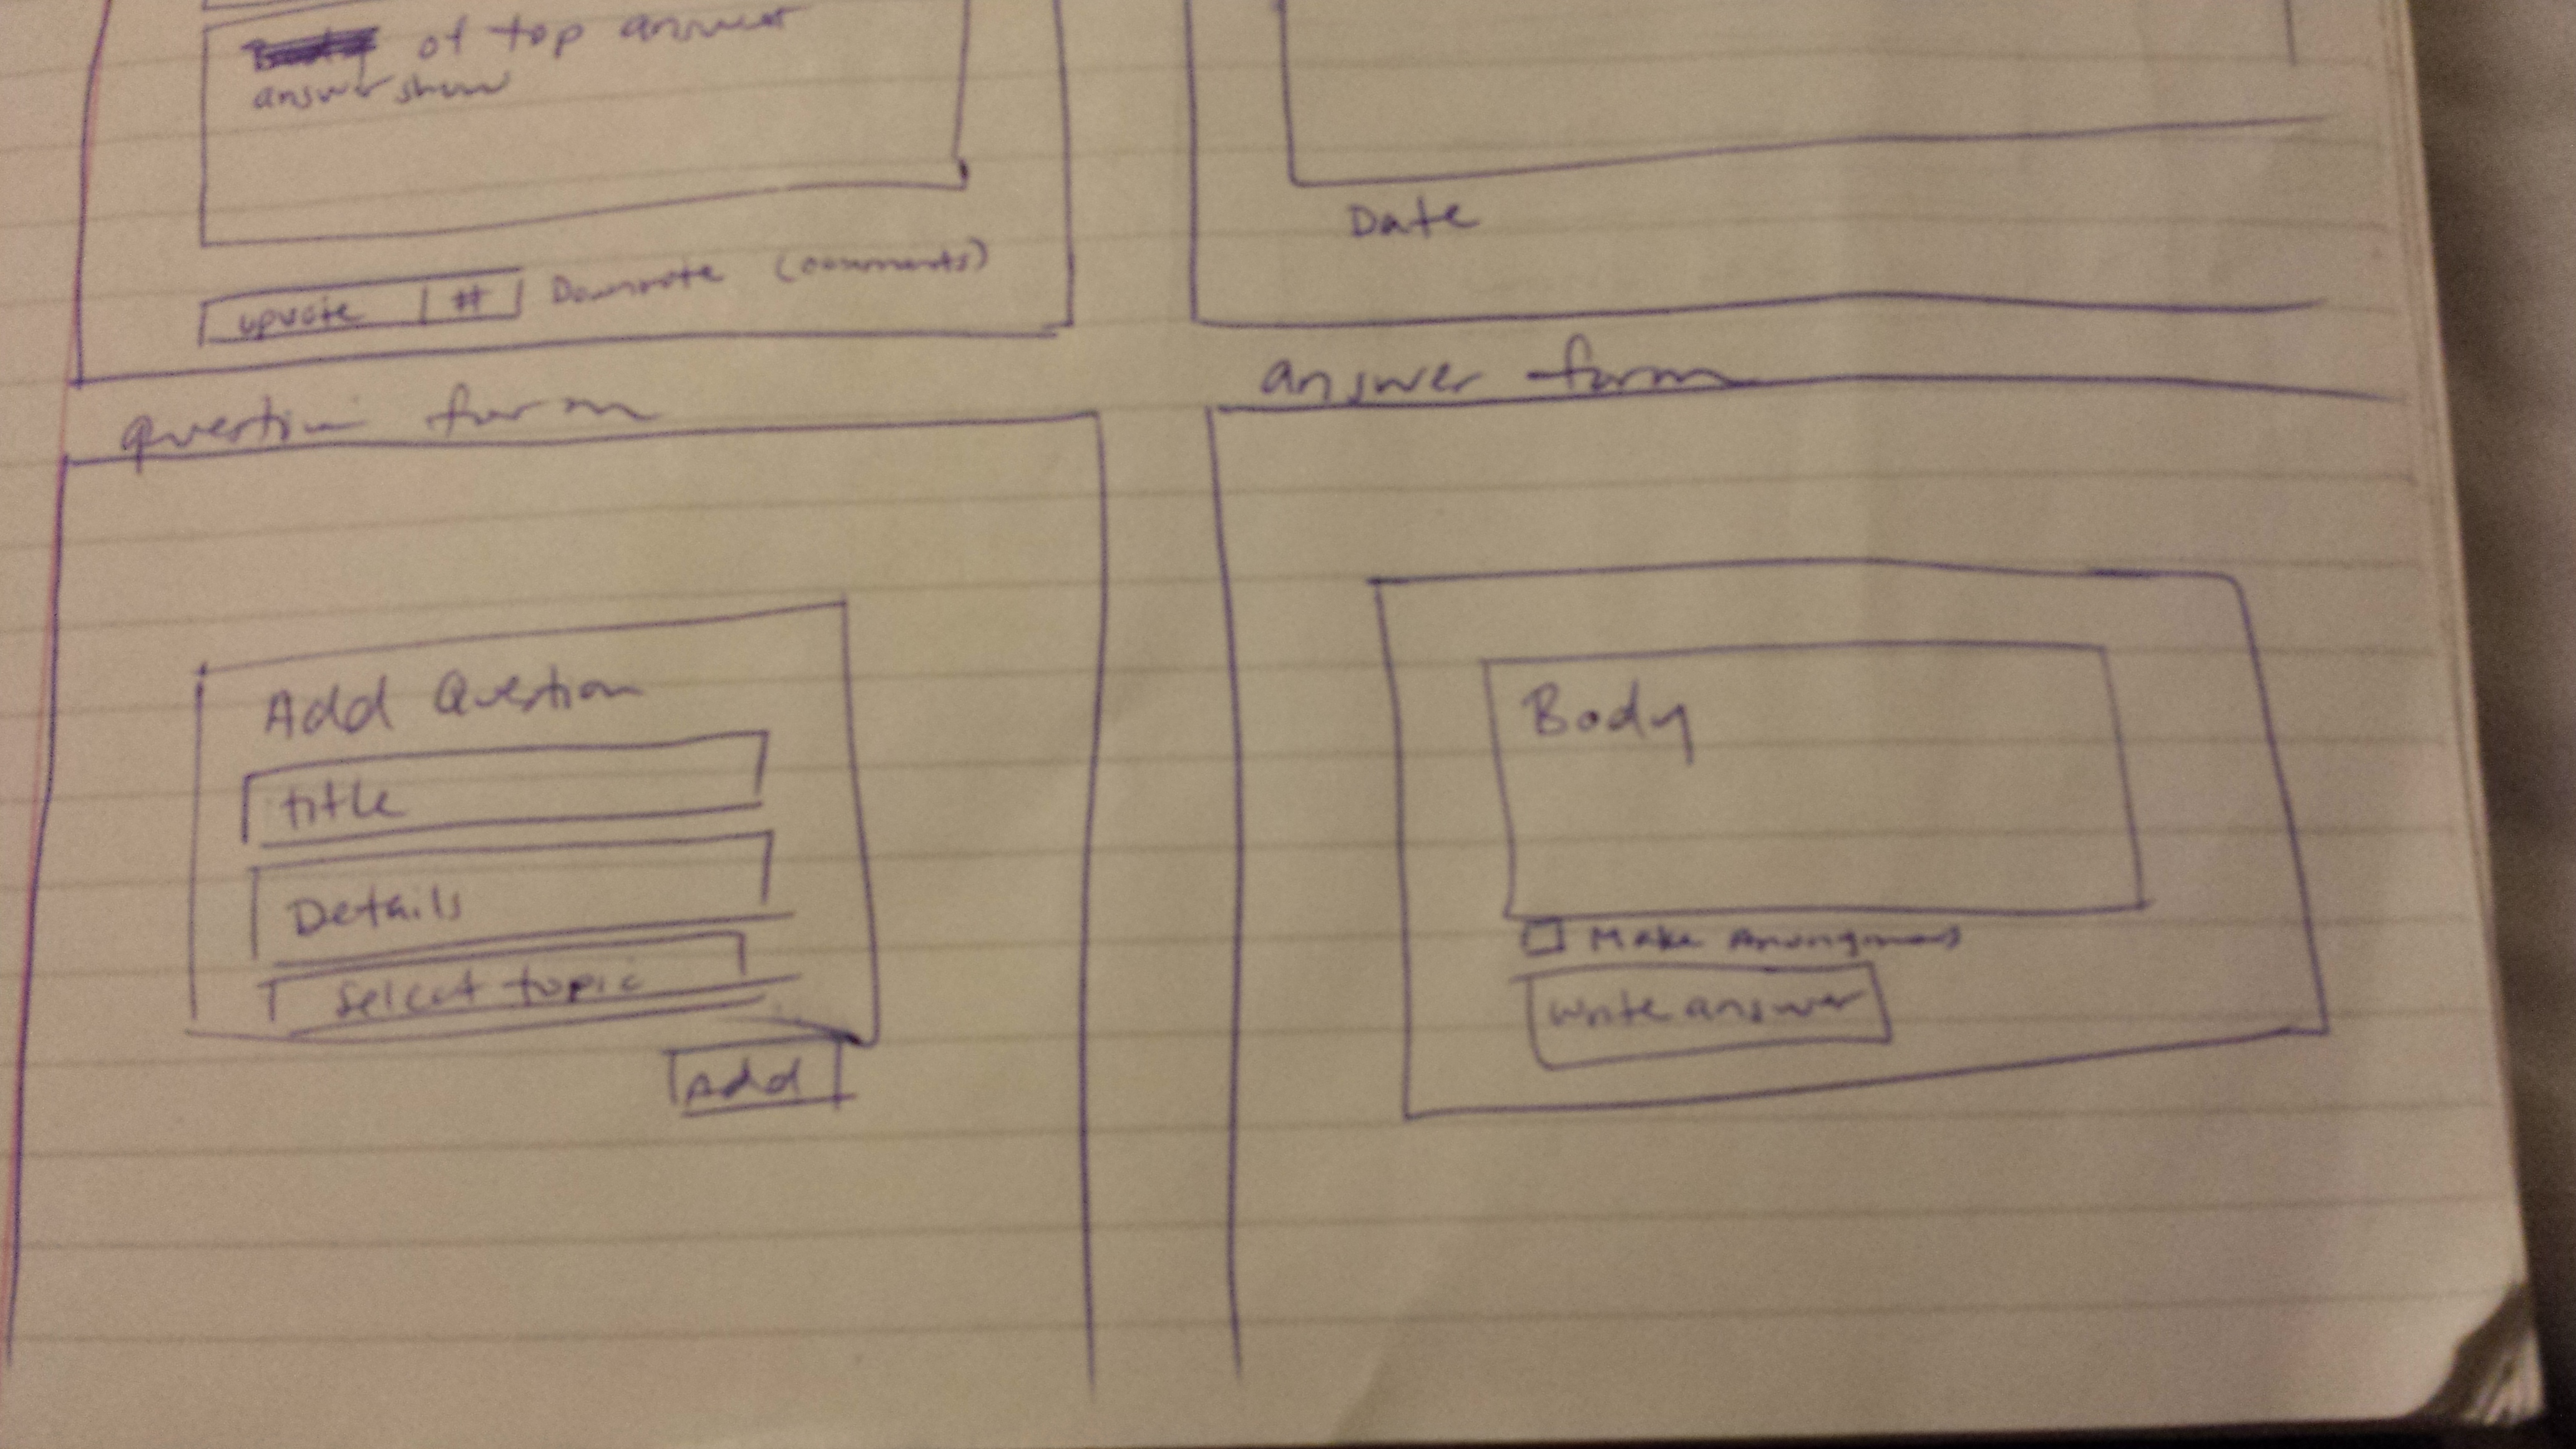 of top answer
answer show
upvote | # Downvote (comments)
Date
question form
answer form
Add Question
title
Details
Select topic
Add
Body
Make Anonymous
write answer